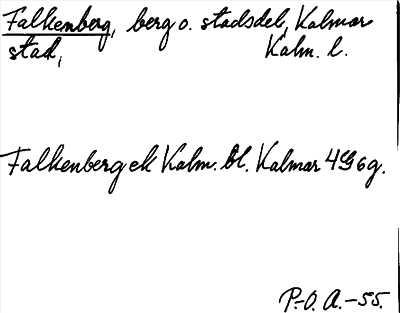 Falkenberg, berg o. stadsdel, Kalmar
stad, Kalm. l.
Falkenberg ek Kalm. bl. Kalmar 4G 6g.
P.-O. A. -55.